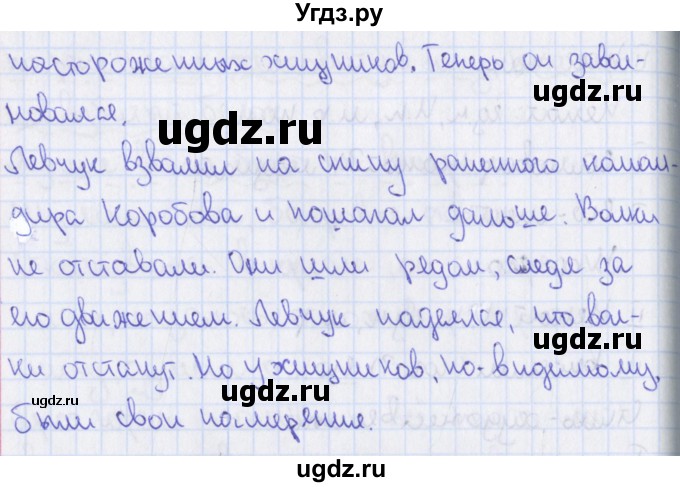 Угдз.ру
настороженных хищников. Теперь он завол-
новался.
ugdz.ru ugdz.ru
Левчук взвалил на спину раненного коман-
дира Коробова и пошагал дальше. Волки
не отставали. Они шли рядом, следя за
ugdz.ru
его движением. Левчук надеялся, что вол-
ки отстанут. Но у хищников, по-видимому,
ugdz.ru ugdz.ru
были свои намерения.
ugdz.ru